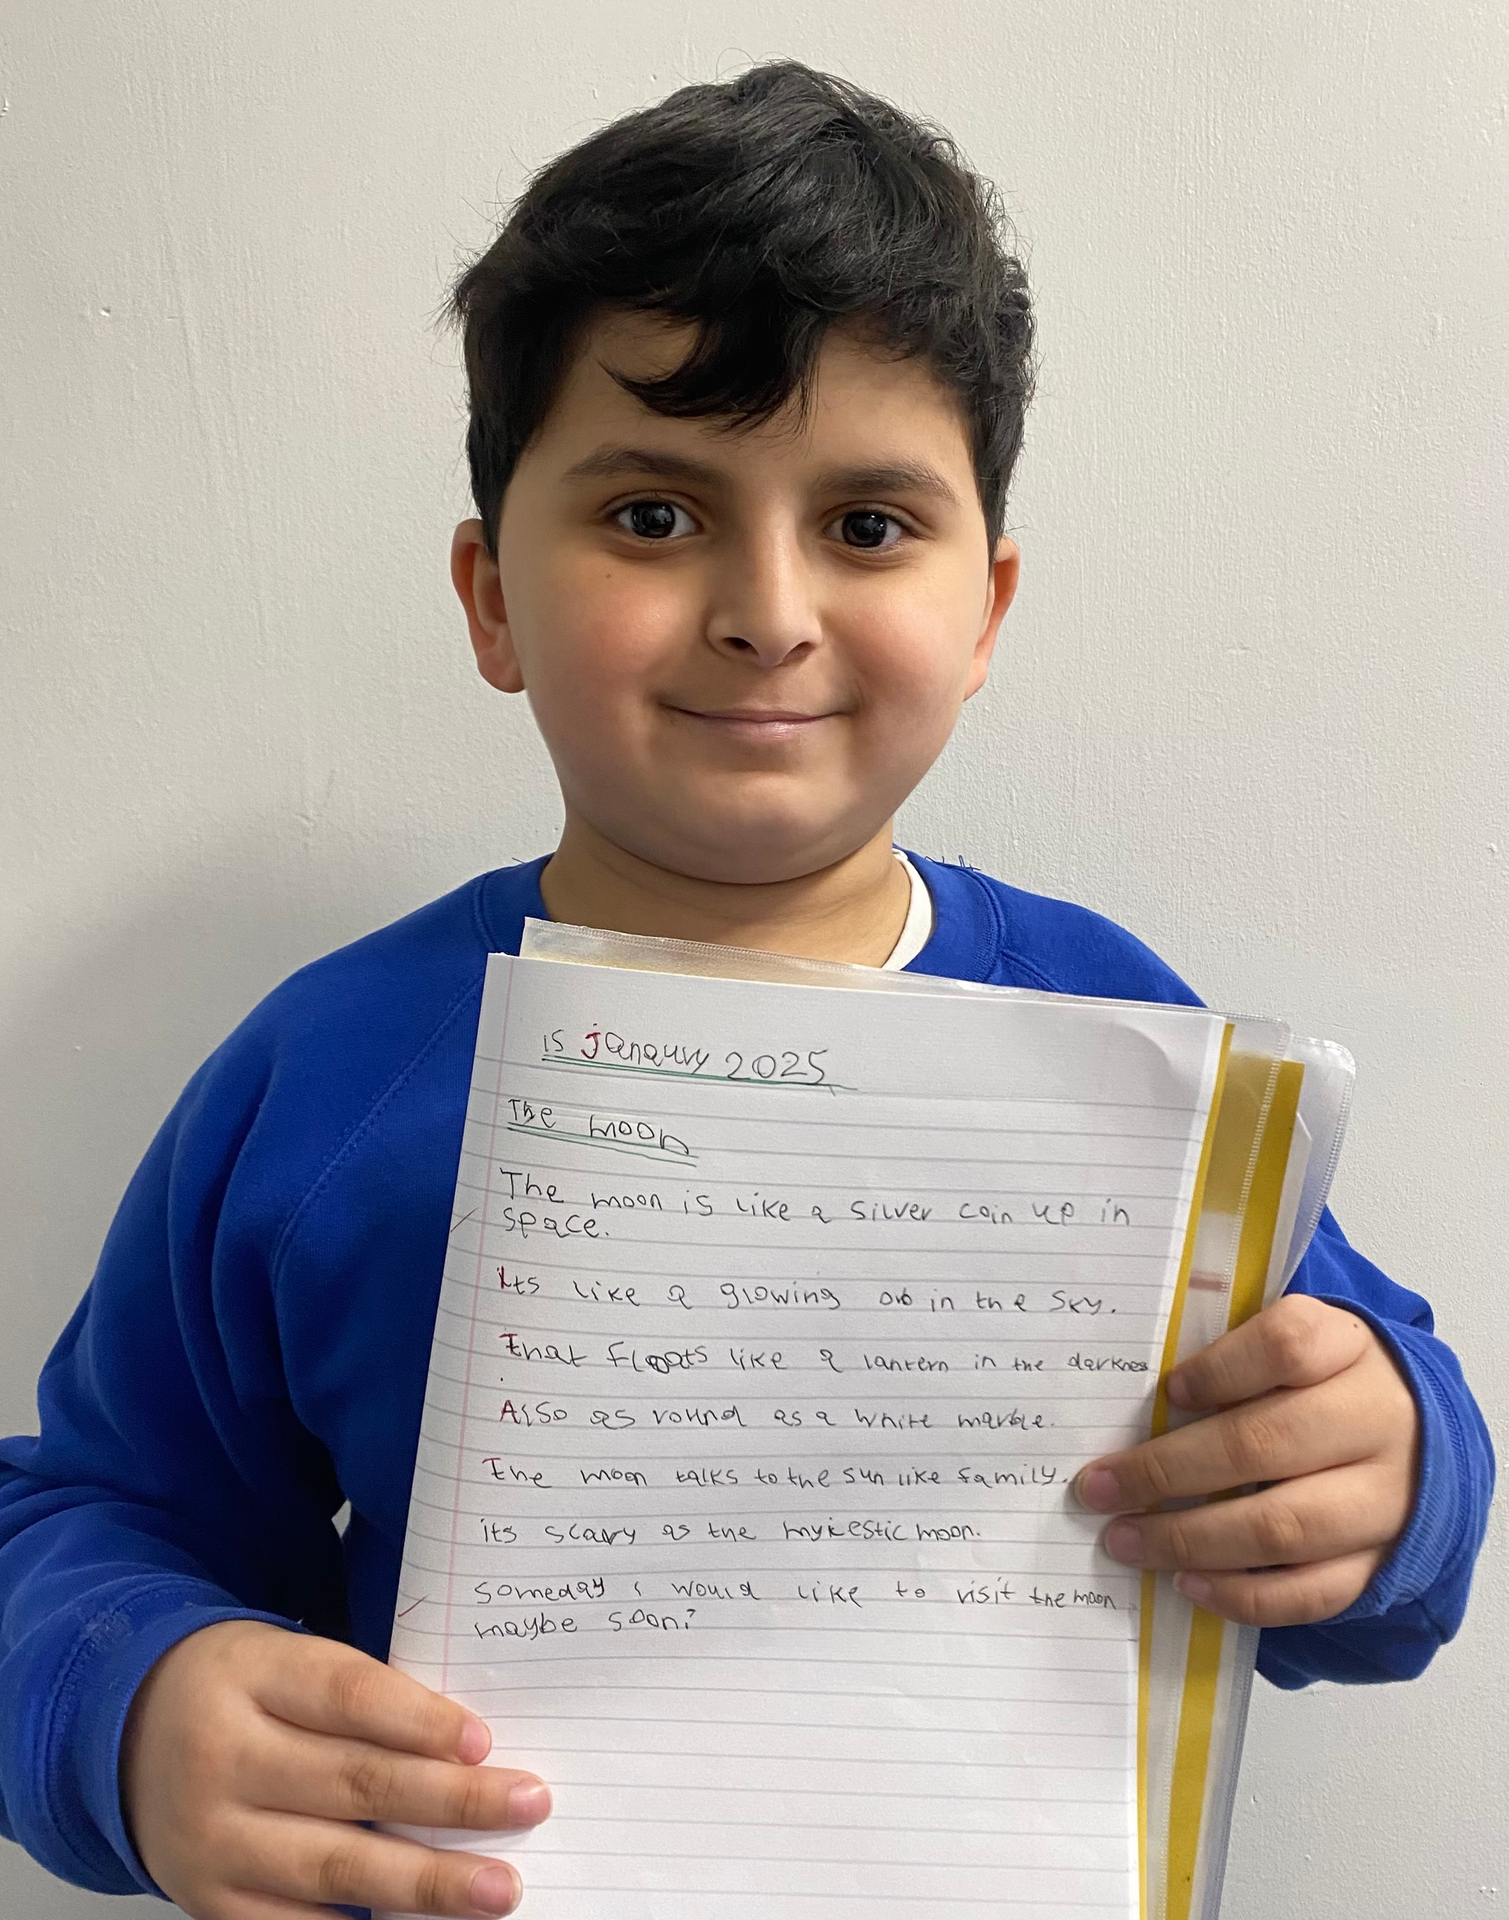 15 janaury 2025
The moon
The moon is like a silver coin up in
space.
Its like a glowing orb in the sky.
That floats like a lantern in the darknes
Also as round as a white marble.
The moon talks to the sun like family.
its scary as the mykestic moon.
someday i would like to visit the moon
maybe soon?